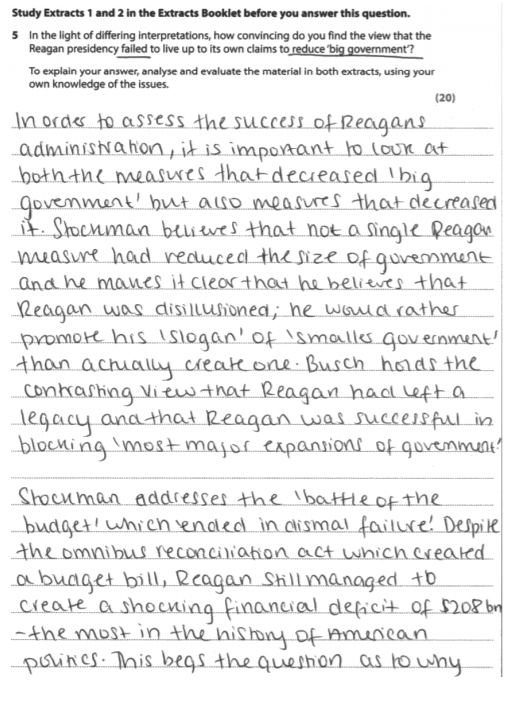 Study Extracts 1 and 2 in the Extracts Booklet before you answer this question.
5 In the light of differing interpretations, how convincing do you find the view that the
Reagan presidency failed to live up to its own claims to reduce 'big government'?
To explain your answer, analyse and evaluate the material in both extracts, using your
own knowledge of the issues.
(20)
In order to assess the success of Reagans
administration, it is important to look at
both the measures that decreased 'big
government' but also measures that decreased
it. Stockman believes that not a single Reagan
measure had reduced the size of government
and he makes it clear that he believes that
Reagan was disillusioned; he would rather
promote his 'slogan' of 'smaller government'
than actually create one. Busch holds the
contrasting view that Reagan had left a
legacy and that Reagan was successful in
blocking 'most major expansions of government.'
Stockman addresses the 'battle of the
budget' which 'ended in dismal failure'. Despite
the omnibus reconciliation act which created
a budget bill, Reagan still managed to
create a shocking financial deficit of $208bn
-the most in the history of American
politics. This begs the question as to why